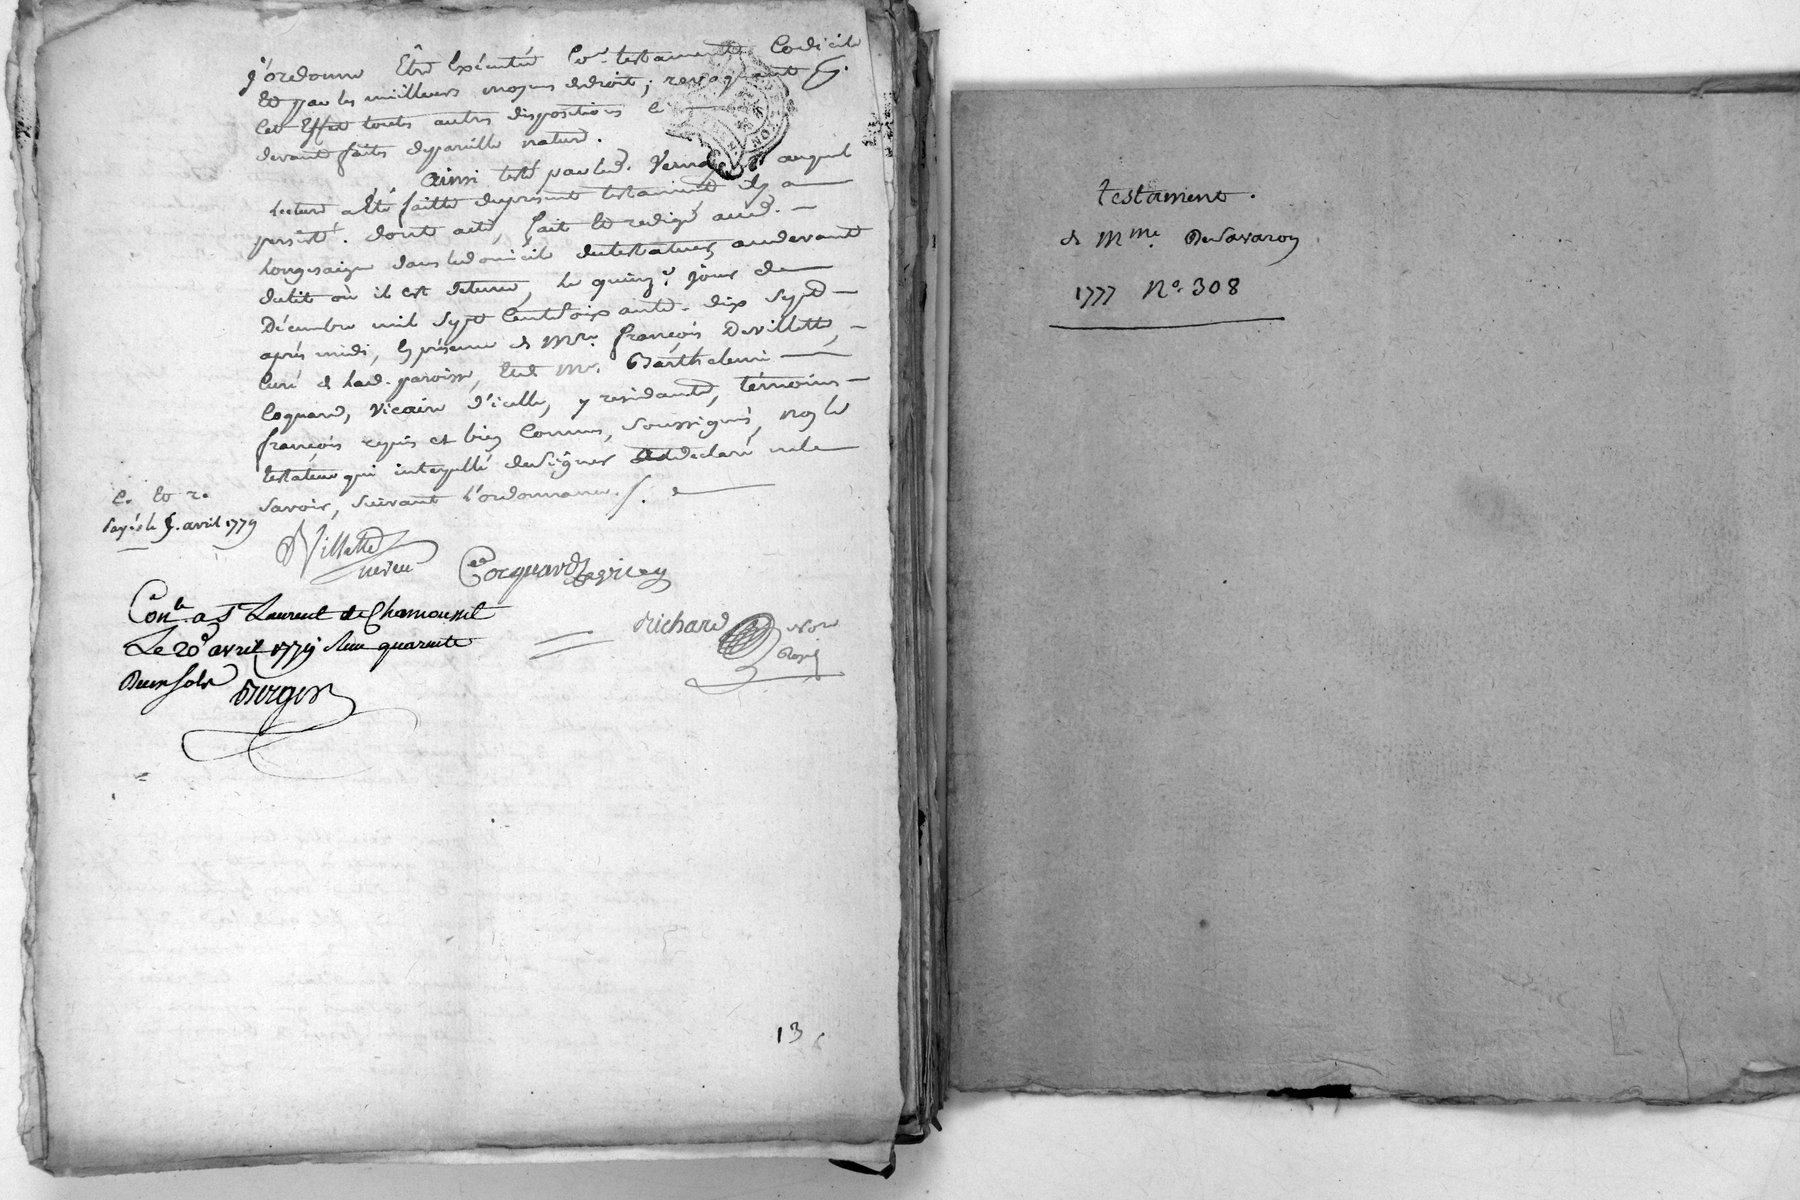 j'ordonne Etre Exécuté Co.e testament, Codicile
Et par les meilleurs moyens dedroit; revoquant
Cet Effet touts autres dispositions
devant faits depareille nature.
Ainsi testé par led. auquel
Lecture a Eté faitte duprésent testament, il y a
persisté. dont acte, fait Et redigé aud.
Longesaigne dans ledomicile dutestateur, audevant
dulit où il est detenu, le quinz.e jour de
Décembre mil Sept Cent Soixante-dix Sept
après midi, En présence de Mre. françois Devillette,
Curé de lad. paroisse, Et de Mre. Barthelemi
Coquard, Vicaire d'icelle, y residants, témoins
françois requis et bien Connus, Soussignés, non le
testateur qui interpellé designer a déclaré nele
Savoir, Suivant l'ordonnance.
C. Et r.
Payés le 5. avril 1779
DVillette
curé
Cocquard vic.
richard Nore
Royal
Con.lé a St Laurent de Chamousset
Le 20 avril 1779 Reçu quarente
Deux sols Berger
13
testament.
de Mme. DeSavaron
1777 No. 308